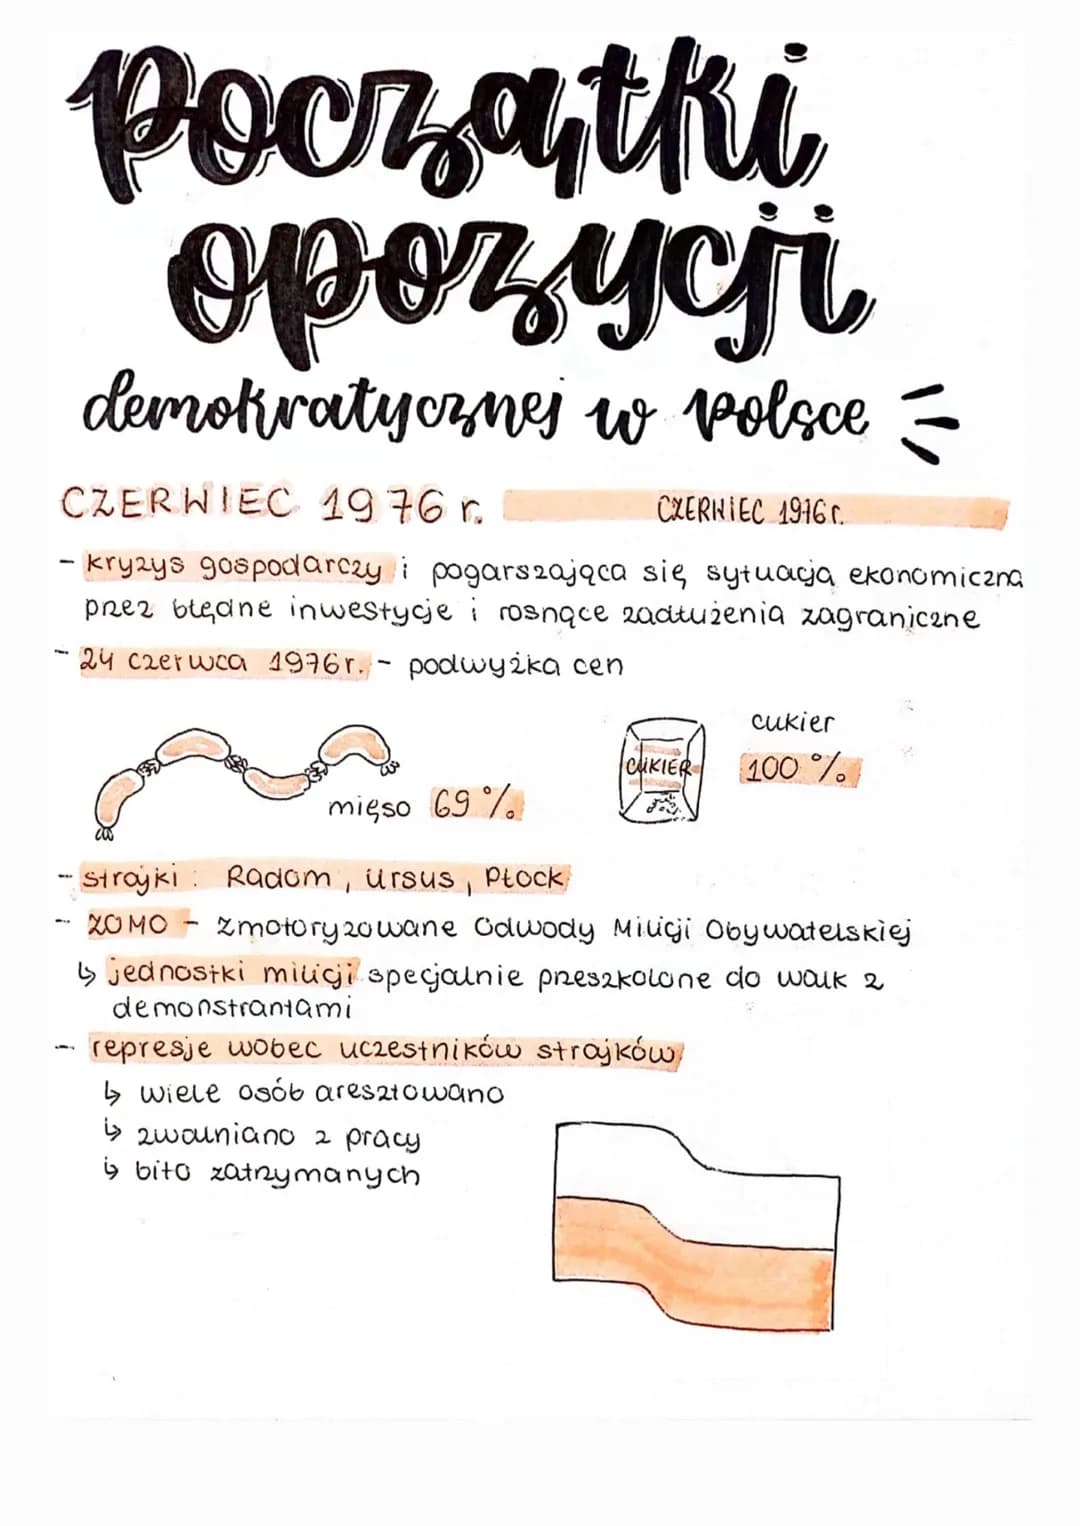 Początki
opozycji
demokratycznej w Polsce
CZERWIEC 1976 r.
CZERWIEC 1976r.
- kryzys gospodarczy i pogarszająca się sytuacja ekonomiczna
przez błędne inwestycje i rosnące zadłużenia zagraniczne
- 24 czerwca 1976r. - podwyżka cen
cukier
CUKIER
100 %
mięso 69 %
- strajki: Radom, Ursus, Płock
- ZOMO - Zmotoryzowane Odwody Milicji Obywatelskiej
↳ jednostki milicji specjalnie przeszkolone do walk z
demonstrantami
- represje wobec uczestników strajków
↳ wiele osób aresztowano
↳ zwalniano z pracy
↳ bito zatrzymanych